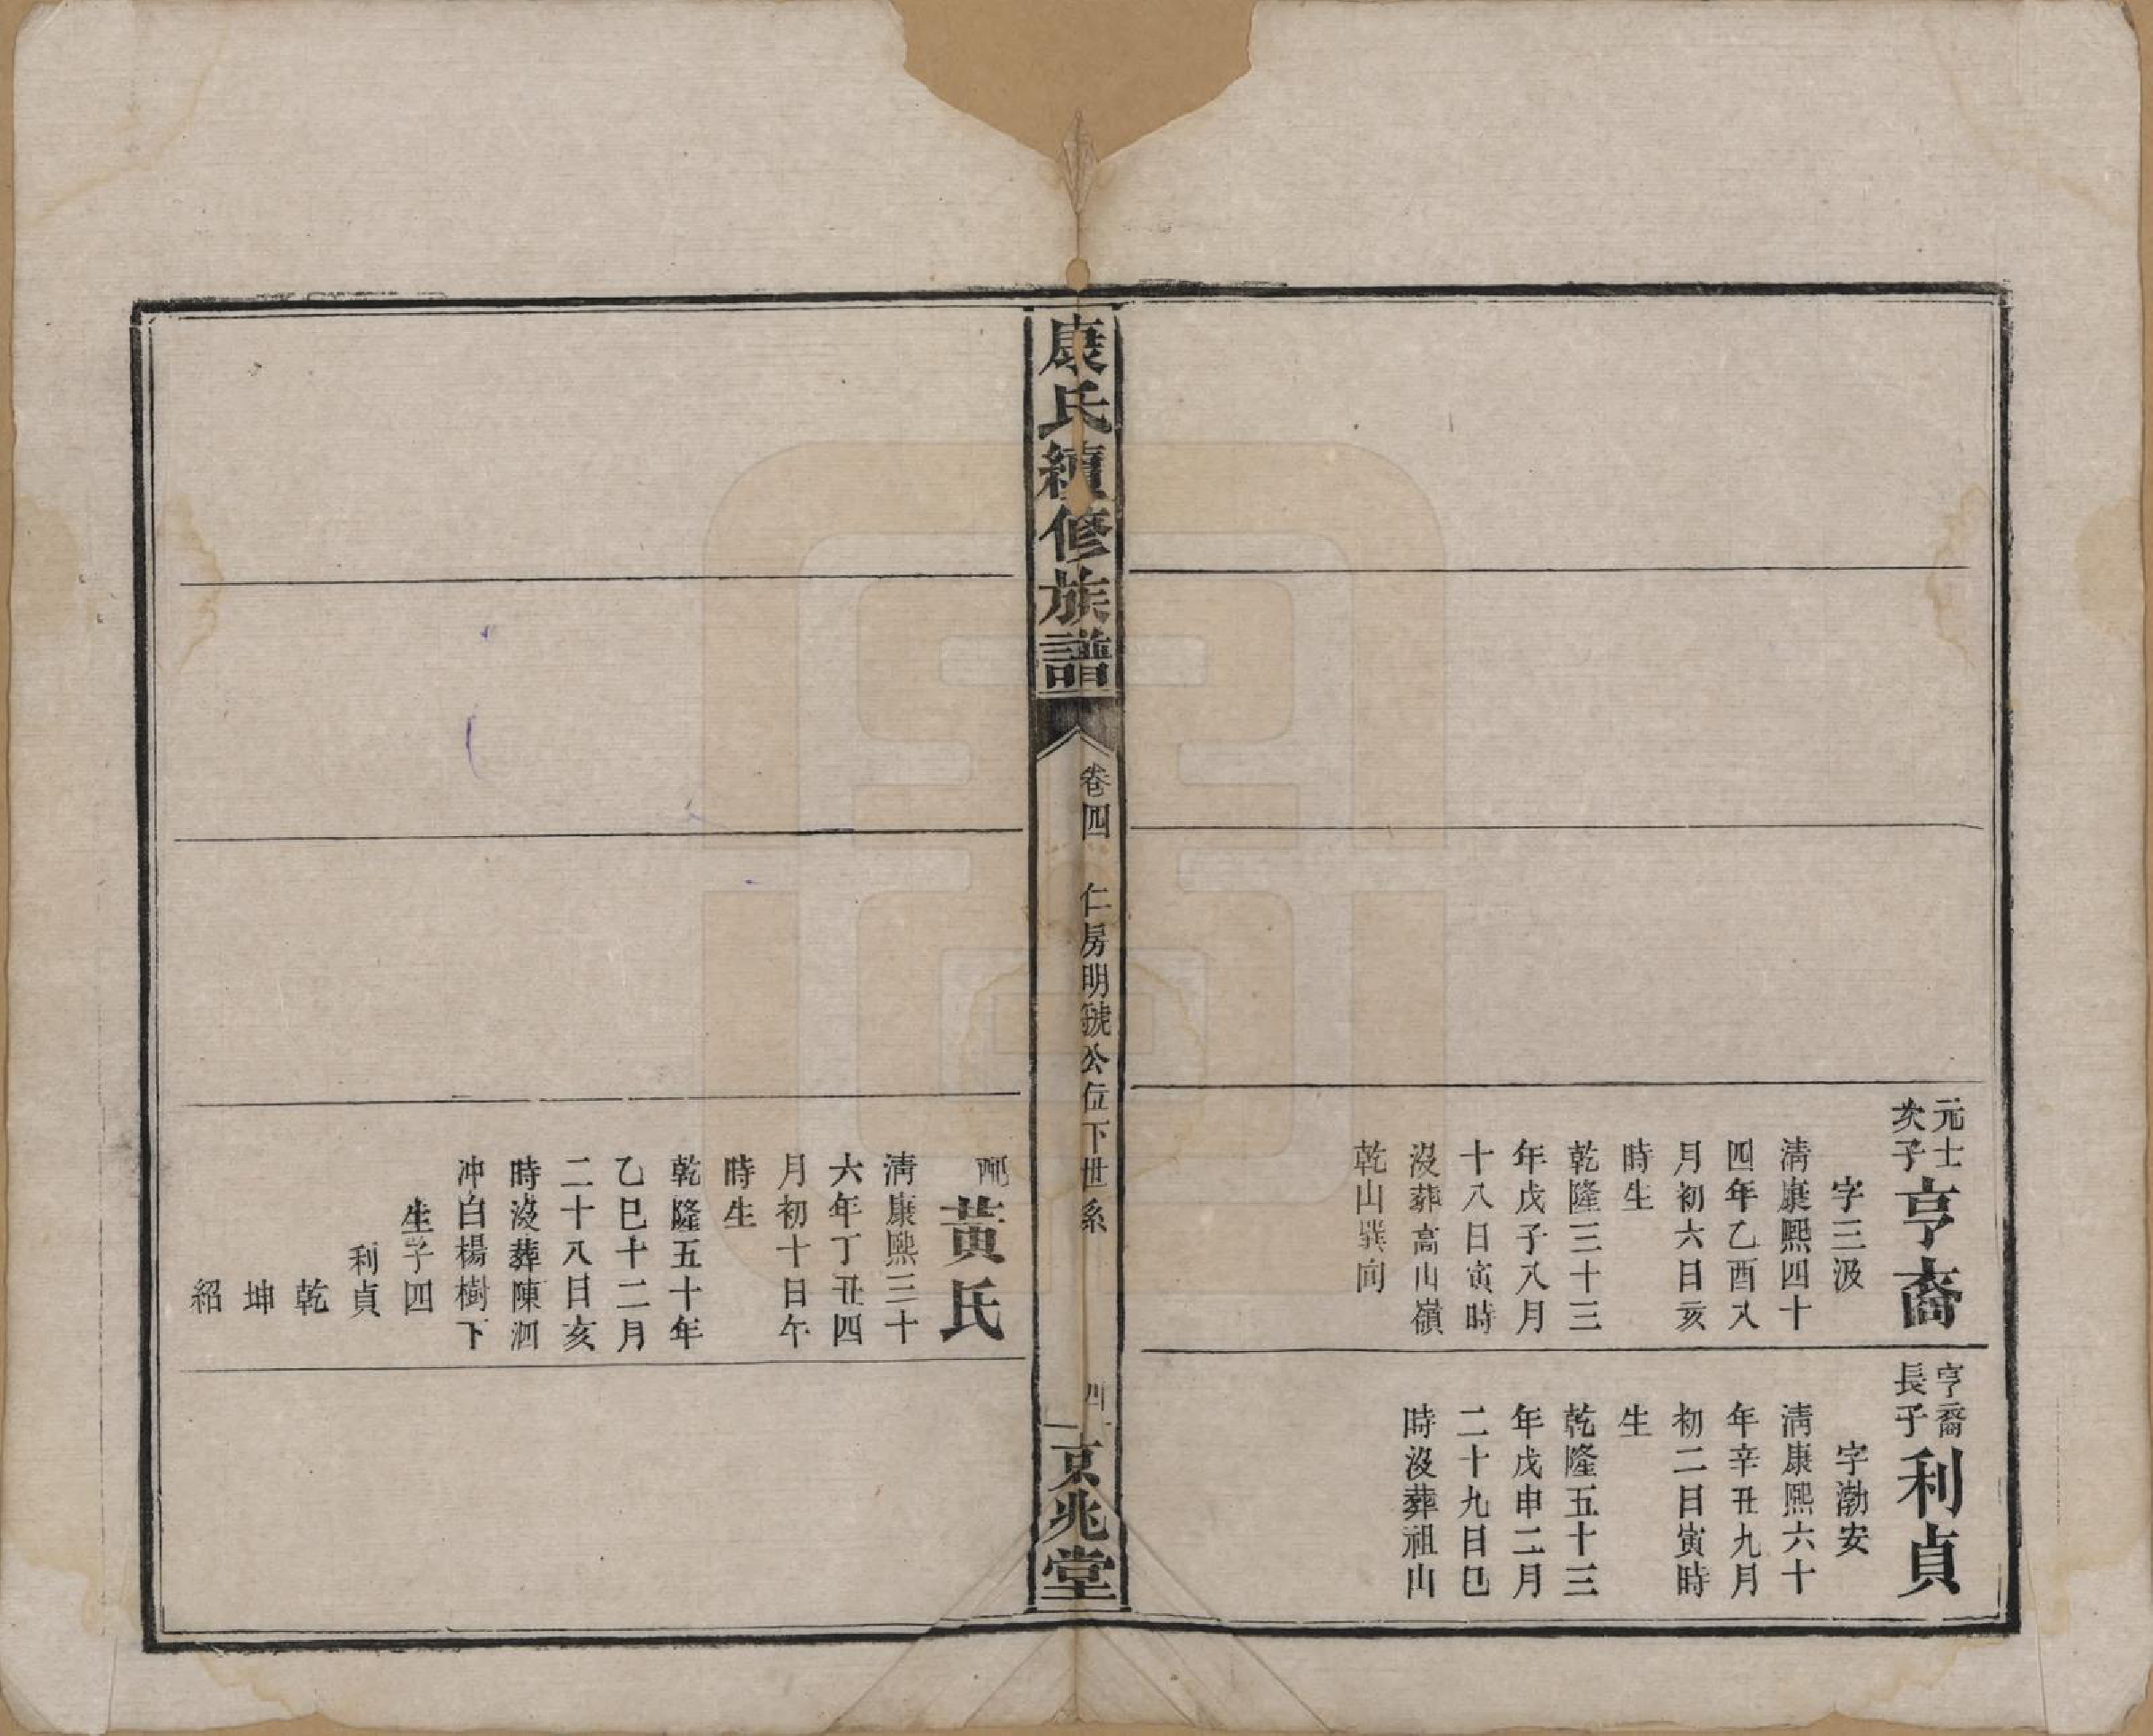 元士
次子
亨裔
字三汲
清康熙四十
四年乙酉八
月初六日亥
時生
乾隆三十三
年戊子八月
十八日寅時
沒葬高山嶺
乾山巽向
亨裔
長子
利貞
字渤安
清康熙六十
年辛丑九月
初二日寅時
生
乾隆五十三
年戊申二月
二十九日巳
時沒葬祖山
康氏續修族譜
卷四
仁房明號公位下世系
四
京兆堂
配
黃氏
清康熙三十
六年丁丑四
月初十日午
時生
乾隆五十年
乙巳十二月
二十八日亥
時沒葬陳泗
冲白楊樹下
生子四
利貞
乾
坤
紹